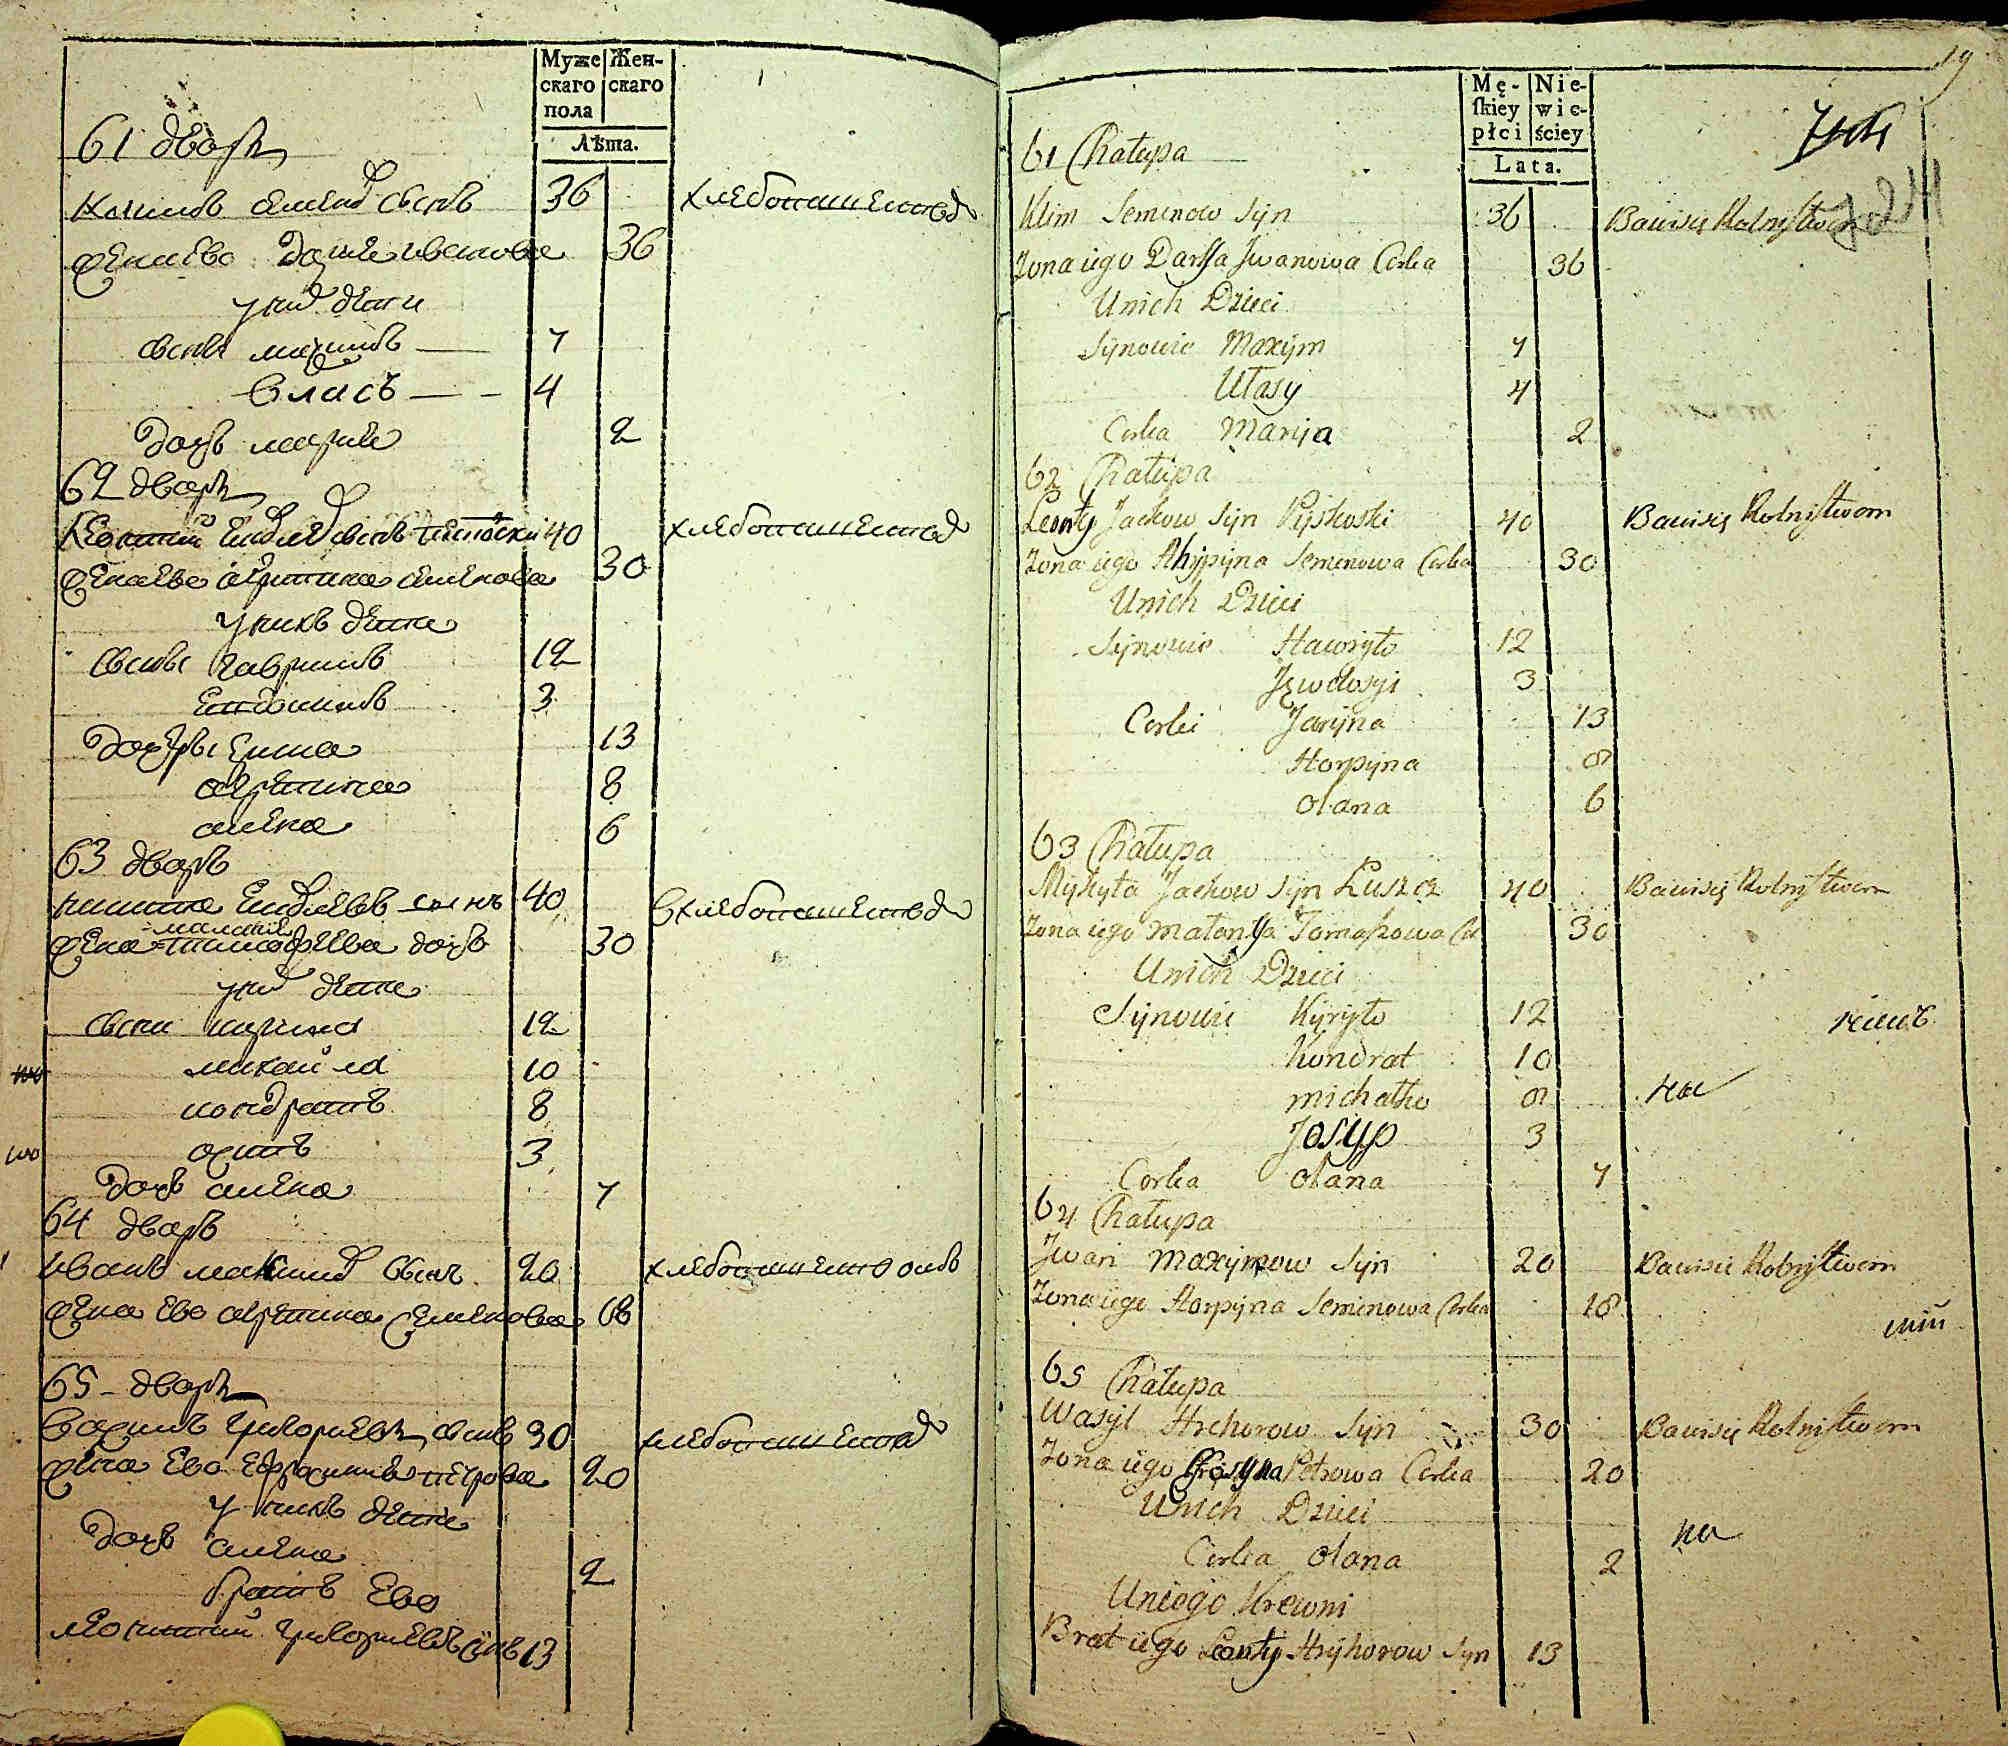 Муже
скаго
пола
Жен-
скаго
Лѣта.
61 дворъ
Климъ семенов сынъ 36 хлебопашеством
жена ево дарье иванова 36
у них дети
сыны максимъ 7
власъ 4
дочь марие 2
62 дворъ
Леонтий сынъ 40 хлебопашеством
жена ево агрипина семенова 30
у нихъ дети
сыны гаврилъ 12
3
дочеры ирина 13
агрепина 8
алена 6
63 дворъ
никита сынъ 40 хлебопашеством
малание
жена тимофеева дочь 30
у них дети
сыны кирила 12
михайла 10
кондратъ 8
осипъ 3
дочь алена 7
64 дворъ
иванъ максимов сынъ 20 хлебопашествомъ
жена ево агрепина семенова 18
65 дворъ
василь григориевъ сынъ 30 хлебопашеством
жена ево ефросиние петрова 20
у нихъ дети
дочь алена 2
братъ ево
леонтий григориевъ сынъ 13
19
Mę-
skiey
płci
Nie-
wie-
ściey
Lata.
61 Chałupa
Klim Semenow Syn 36 Bawisię Rolnistwom
Zona iego Darya Jwanowa Corka 36
Unich Dzieci
Synowie Maxym 7
Ułasy 4
Corka Maryia 2
62 Chałupa
Leonty Jackow Syn Pyskoski 40 Bawisię Rolnistwom
Zona iego Ahypyna Semenowa Corka 30
Unich Dzieci
Synowie Hawryło 12
Jewdosyi 3
Corki Jaryna 13
Horpyna 8
Olana 6
63 Chałupa
Mykyta Jackow Syn Łuszcz 40 Bawisię Rolnistwom
Zona iego Małanya Tomaszowa Cor 30
Unich Dzieci
Synowie Kyryło 12
Kondrat 10
michałko 8 на
Josyp 3
Corka Olana 7
64 Chałupa
Jwan Maxymow Syn 20 Bawisie Rolnistwom
Zona iego Horpyna Semenowa Corka 18
65 Chałupa
Wasyl Hrehorow Syn 30 Bawisię Rolnistwom
Zona iego Frosyna Petrowa Corka 20
Unich Dzieci
на
Corka Olana 2
Uniego Krewni
Brat iego Leonty Hryhorow Syn 13